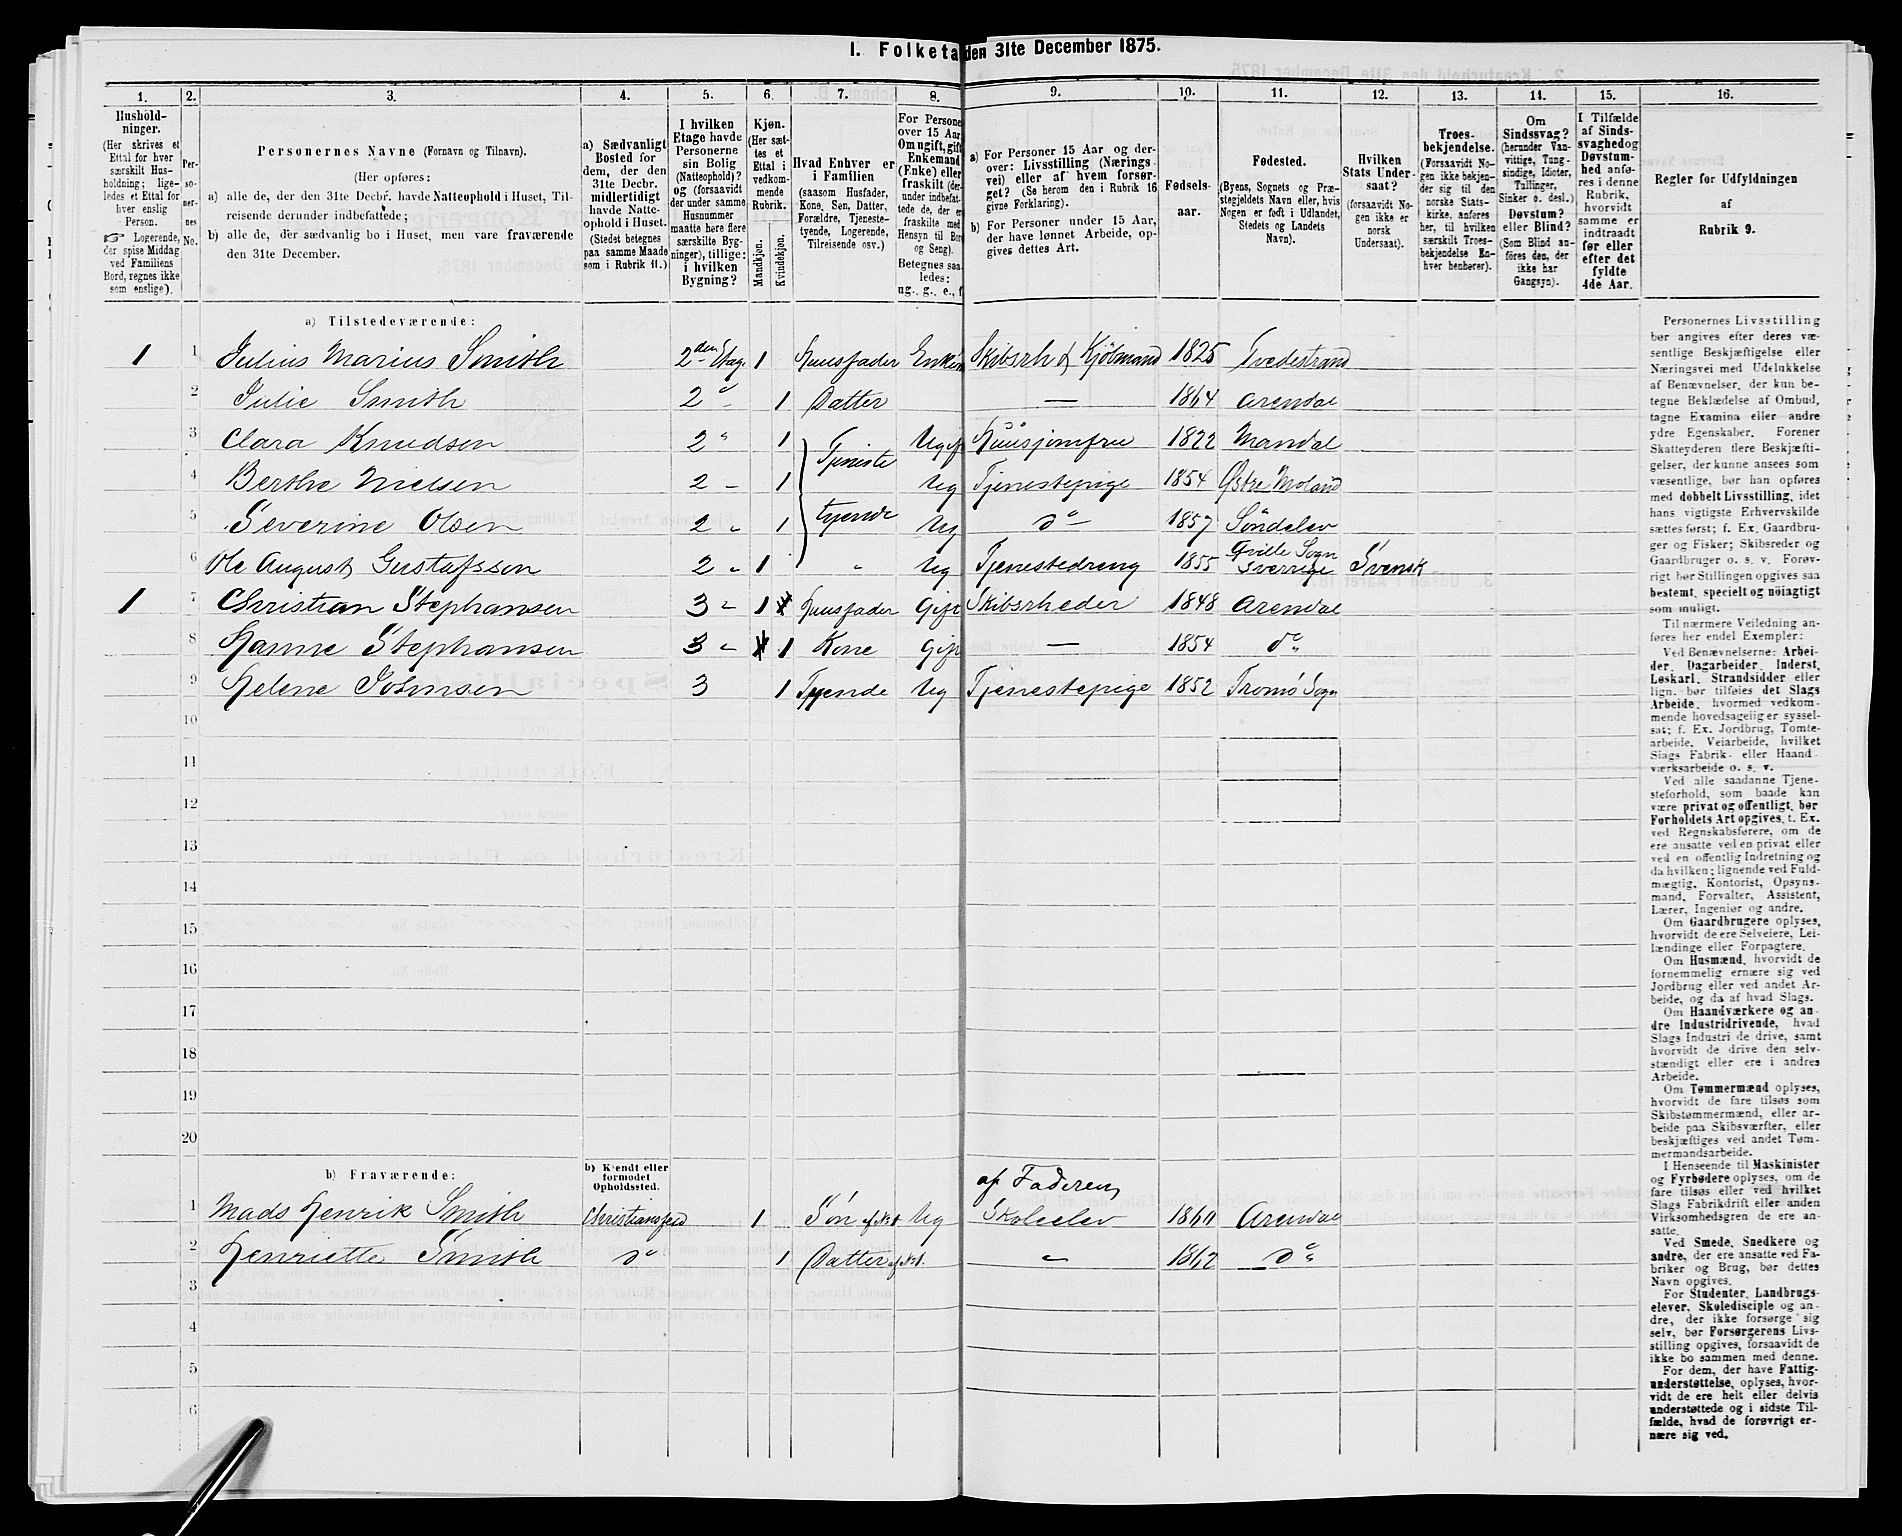 I. Folketa den 31te December 1875.
1. 2. 3. 4. 5. 6. 7. 8. 9. 10. 11. 12. 13. 14. 15. 16.
Hushold-
ninger.
(Her skrives et
Ettal for hver
særskilt Hus-
holdning; lige-
ledes et Ettal for
hver enslig
Person.
☞ Logerende,
der spise Middag
ved Familiens
Bord, regnes ikke
som enslige).
Per-
so-
ner-
nes
No.
Personernes Navne (Fornavn og Tilnavn).
(Her opføres:
a) alle de, der den 31te Decbr. havde Natteophold i Huset, Til-
reisende derunder indbefattede;
b) alle de, der sædvanlig bo i Huset, men vare fraværende
den 31te December.
a) Sædvanligt
Bosted for
dem, der den
31te Decbr.
midlertidigt
havde Natte-
ophold i Huset.
(Stedet betegnes
paa samme Maade
som i Rubrik 11.)
I hvilken
Etage havde
Personerne
sin Bolig
(Natteophold)?
og (forsaavidt
der under samme
Husnummer
maatte høre flere
særskilte Byg-
ninger), tillige:
i hvilken
Bygning?
Kjøn.
(Her sæt-
tes et
Ettal i
vedkom-
mende
Rubrik.
Mandkjøn.
Kvindekjøn.
Hvad Enhver er
i Familien
(saasom Husfader,
Kone, Søn, Datter,
Forældre, Tjeneste-
tyende, Logerende,
Tilreisende osv.)
For Persone
over 15 Aar,
Om ugift, gift
Enkemand
(Enke) eller
fraskilt (der-
under indbefat-
tede de, der er
fraskilte med
Hensyn til Bor
og Seng).
Betegnes saa
ledes:
ug., g., e., f
a) For Personer 15 Aar og der-
over: Livsstilling (Nærings
vei) eller af hvem forsør-
get? (Se herom den i Rubrik 16
givne Forklaring).
b) For Personer under 15 Aar,
der have lønnet Arbeide, op-
gives dettes Art.
Fødsels-
aar.
Fødested.
(Byens, Sognets og Præ-
stegjeldets Navn eller, hvis
Nogen er født i Udlandet,
Stedets og Landets
Navn).
Hvilken
Stats Under-
saat?
(forsaavidt No-
gen ikke er
norsk
Undersaat).
Troes-
bekjendelse.
(Forsaavidt No-
gen ikke bekjen-
der sig til den
norske Stats-
kirke, anføres
her, til hvilken
særskilt Troes-
bekjendelse En-
hver henhører).
Om
Sindssvag?
(herunder Van-
vittige, Tung-
sindige, Idioter,
Tullinger,
Sinker o. desl.)
Døvstum?
eller Blind?
(Som Blind an-
føres den, der
ikke har
Gangsyn).
I Tilfælde
af Sinds-
svaghedog
Døvstum-
hed anfø-
res i denne
Rubrik,
hvorvidt
samme er
indtraadt
før eller
efter det
fyldte
4de Aar.
Regler for Udfyldningen
af
Rubrik 9.
a) Tilstedeværende:
1 1 Julius Marius Smith 2den Etag. 1 Huusfader Enkem Skibsrh & Kjøbmand 1825 Tvedestrand
2 Julie Smith 2 " 1 Datter — 1864 Arendal
3 Clara Knudsen 2 " 1 Tjeneste Ugift Huusjomfru 1822 Mandal
4 Berthe Nielsen 2 – 1 Ug Tjenestepige 1854 Østre Moland
5 Severine Olsen 2 " 1 tyende Ug do 1857 Söndelev
6 Ole August Gustafsson 2 " 1 " Ug Tjenestedreng 1855 Qville Sogn Sverrige Svensk
1 7 Christian Stephansen 3 – 1 Huusfader Gift Skibsrheder 1848 Arendal
8 Hanne Stephansen 3 – 1 Kone Gift — 1854 do
9 Helene Johnsen 3 1 Tyende Ug Tjenestepige 1852 Tromö Sogn
10
11
12
13
14
15
16
17
18
19
20
b) Fraværende:
b) Kjendt eller
formodet
Opholdssted.
af Faderen
1 Mads Henrik Smith Christiansfeld 1 Søn af No 1 Ug Skoleelev 1860 Arendal
2 Henriette Smith do 1 Datter af No 1. " 1862 do
3
4
5
6
Personernes Livsstilling
bør angives efter deres væ-
sentlige Beskjæftigelse eller
Næringsvei med Udelukkelse
af Benævnelser, der kun be-
tegne Beklædelse af Ombud,
tagne Examina eller andre
ydre Egenskaber. Forener
Skatteyderen flere Beskjæfti-
gelser, der kunne ansees som
væsentlige, bør han opføres
med dobbelt Livsstilling, idet
hans vigtigste Erhvervskilde
sættes først; f. Ex. Gaardbru-
ger og Fisker; Skibsreder og
Gaardbruger o. s. v. Forøv-
rigt bør Stillingen opgives saa
bestemt, specielt og nøiagtigt
som muligt.
Til nærmere Veiledning an-
føres her endel Exempler:
Ved Benævnelserne: Arbei-
der, Dagarbeider, Inderst,
Løskarl, Strandsidder eller
lign. bør tilføies det Slags
Arbeide, hvormed vedkom-
mende hovedsagelig er syssel-
sat; f. Ex. Jordbrug, Tomte-
arbeide, Veiarbeide, hvilket
Slags Fabrik- eller Haand-
værksarbeide o. s. v.
Ved alle saadanne Tjene-
steforhold, som baade kan
være privat og offentligt, bør
Forholdets Art opgives, t. Ex.
ved Regnskabsførere, om de
ere ansatte ved en privat eller
ved en offentlig Indretning og
da hvilken; lignende ved Fuld-
mægtig, Kontorist, Opsyns-
mand, Forvalter, Assistent,
Lærer, Ingeniør og andre.
Om Gaardbrugere oplyses,
hvorvidt de ere Selveiere, Lei-
lændinge eller Forpagtere.
Om Husmænd, hvorvidt de
fornemmelig ernære sig ved
Jordbrug eller ved andet Ar-
beide, og da af hvad Slags.
Om Haandværkere og an-
dre Industridrivende, hvad
Slags Industri de drive, samt
hvorvidt de drive den selv-
stændigt eller ere i andres
Arbeide.
Om Tømmermænd oplyses,
hvorvidt de fare tilsøs som
Skibstømmermænd, eller ar-
beide paa Skibsværfter, eller
beskjæftiges ved andet Tøm-
mermandsarbeide.
I Henseende til Maskinister
og Fyrbødere oplyses, om de
fare tilsøs eller ved hvilket
Slags Fabrikdrift eller anden
Virksomhedsgren de ere an-
satte.
Ved Smede, Snedkere og
andre, der ere ansatte ved Fa-
briker og Brug, bør dettes
Navn opgives.
For Studenter, Landbrugs-
elever, Skoledisciple og an-
dre, der ikke forsørge sig
selv, bør Forsørgerens Livs-
stilling opgives, forsaavidt de
ikke bo sammen med denne.
For dem, der have Fattig-
understøttelse, oplyses, hvor-
vidt de ere helt eller delvis
understøttede og i sidste Til-
fælde, hvad de forøvrigt er-
nære sig ved.